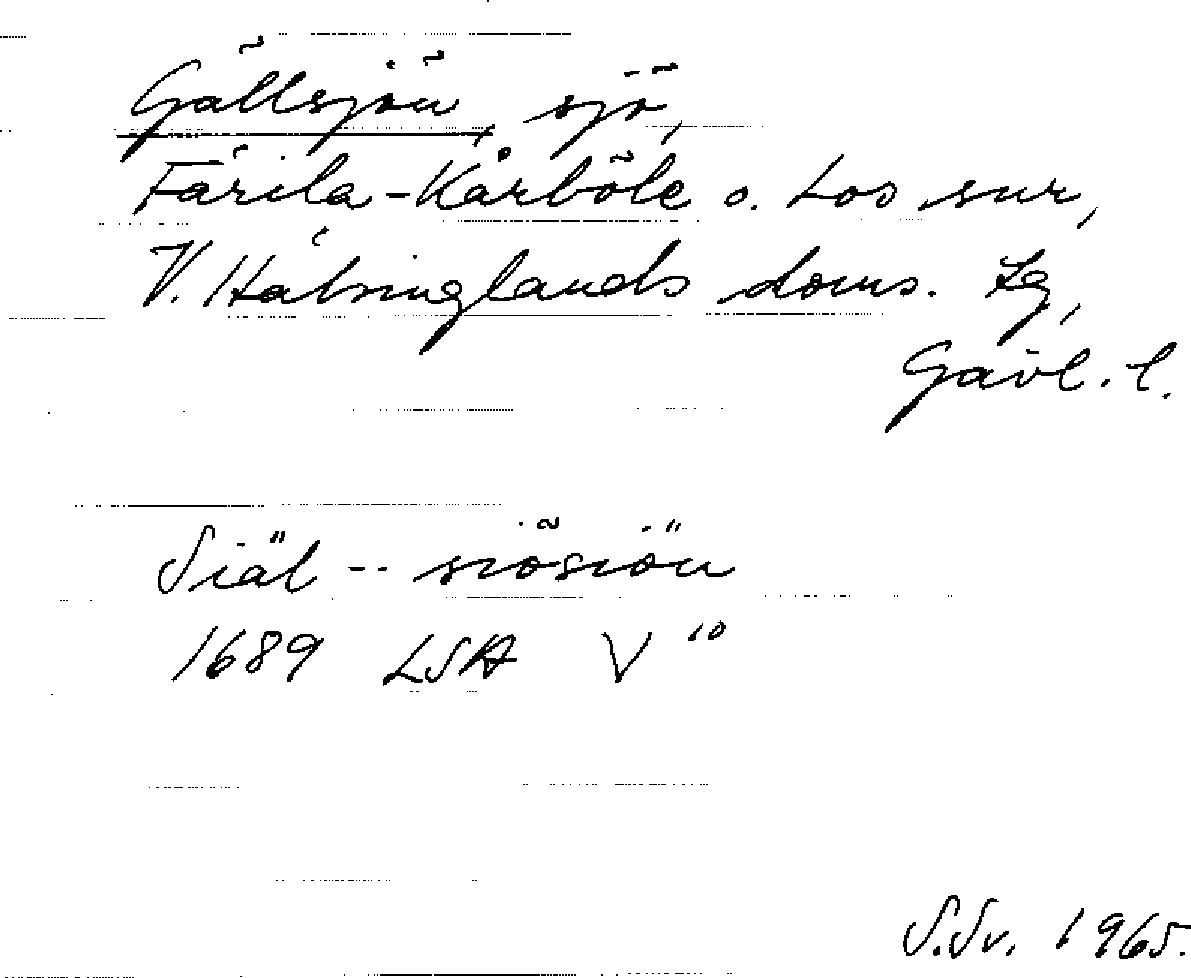 Gällsjön, sjö,
Färila-Kårböle o. Los snr,
V. Hälsinglands doms. tg,
Gävl. l.
Siäl -- siösiön
1689 LSA V 10
S.Sv. 1965.